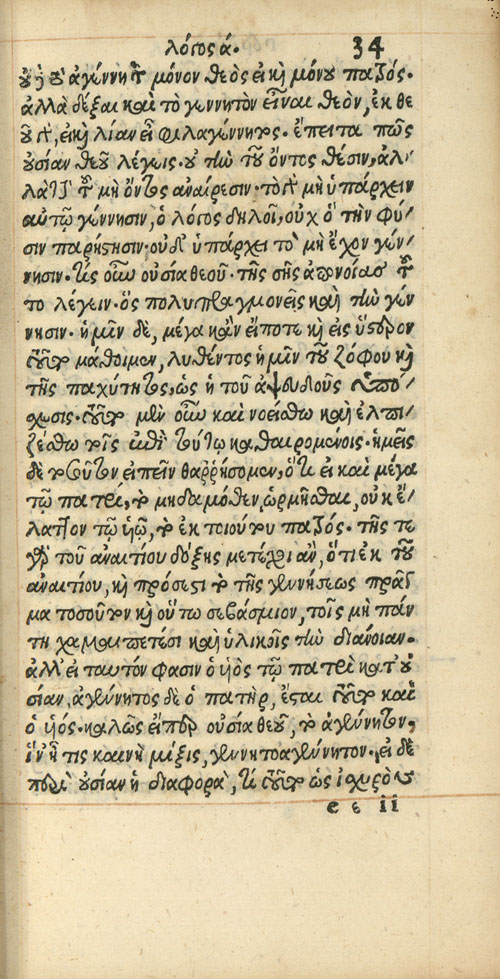 λόγος ά. 34
ἀγεννήτου μόνον θεὸς εἰ καὶ μόνου πατρός.
ἀλλὰ δέξαι καὶ τὸ γεννητὸν εἶναι θεὸν, ἐκ θε
οῦ γὰρ, εἰ καὶ λίαν εἶ φιλαγέννητος. ἔπειτα πῶς
οὐσίαν θεοῦ λέγεις. οὐ τὴν τοῦ ὄντος θέσιν, ἀλ/
λὰ τὴν τοῦ μὴ ὄντος ἀναίρεσιν. τὸ γὰρ μὴ ὑπάρχειν
αὐτῷ γέννησιν, ὁ λόγος δηλοῖ, οὐχ ὃ τὴν φύ/
σιν παρήστησιν. οὐδὲ ὑπάρχει τὸ μὴ ἔχον γέν/
νησιν. τίς οὖν οὐσία θεοῦ. τῆς σῆς ἀπονοίας τοῦ
το λέγειν. ὃς πολυπραγμονεῖς καὶ τὴν γέν
νησιν. ἡμῖν δὲ, μέγα κἂν εἴποτε καὶ εἰς ὕστερον
τοῦτο μάθοιμεν, λυθέντος ἡμῖν τοῦ ζόφου καὶ
τῆς παχύτητος, ὡς ἡ τοῦ ἀψευδοῦς ὑπό/
σχεσις. τοῦτο μὲν οὖν καὶ νοείσθω καὶ ἐλπι/
ζέσθω τοῖς ἐπὶ τούτῳ καθαιρομένοις. ἡμεῖς
δὲ τοσοῦτον εἰπεῖν θαῤῥήσομεν, ὅτι εἰ καὶ μέγα
τῷ πατρὶ, τὸ μηδαμόθεν ὡρμῆσθαι, οὐκ ἔ/
λαττον τῷ ὑιῷ, τὸ ἐκ τοιούτου πατρός. τῆς τε
γὰρ τοῦ ἀναιτίου δόξης μετέχοι ἂν, ὅτι ἐκ τοῦ
ἀναιτίου, καὶ πρόσεστι τὸ τῆς γεννήσεως πρᾶγ
μα τοσοῦτον καὶ οὕτω σεβάσμιον, τοῖς μὴ πάν
τη χαμαιπετέσι καὶ ὑλικοῖς τὴν διάνοιαν.
ἀλλ' εἰ ταυτόν φασιν ὁ ὑιὸς τῷ πατρὶ κατ' οὐ
σίαν, ἀγέννητος δὲ ὁ πατὴρ, ἔσται τοῦτο καὶ
ὁ ὑιός. καλῶς εἴπερ οὐσία θεοῦ, τὸ ἀγέννητον,
ἵν' ᾖ τις καινὴ μίξις, γεννητοαγέννητον. εἰ δὲ
περὶ οὐσίαν ἡ διαφορὰ, τί τοῦτο ὡς ἰσχυρὸν
e e ii